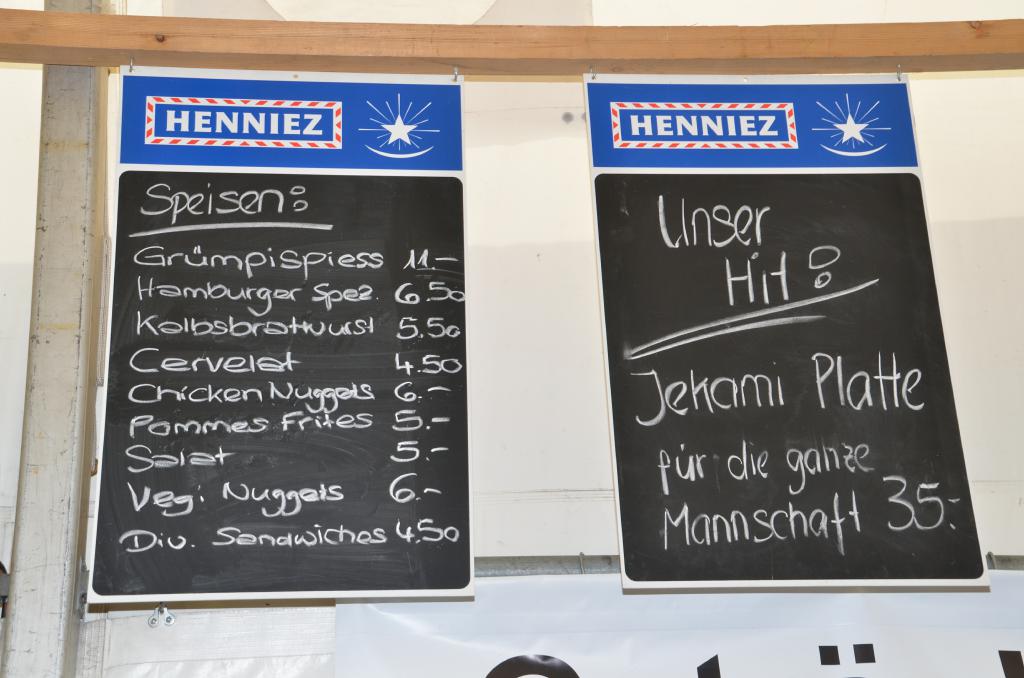 HENNIEZ
Speisen:
Grümpispiess 11.-
Hamburger Spez. 6.50
Kalbsbratwurst 5.50
Cervelat 4.50
Chicken Nuggets 6.-
Pommes Frites 5.-
Salat 5.-
Veg. Nuggets 6.-
Div. Sandwiches 4.50
HENNIEZ
Unser
Hit!
Jekami Platte
für die ganze
Mannschaft 35.-